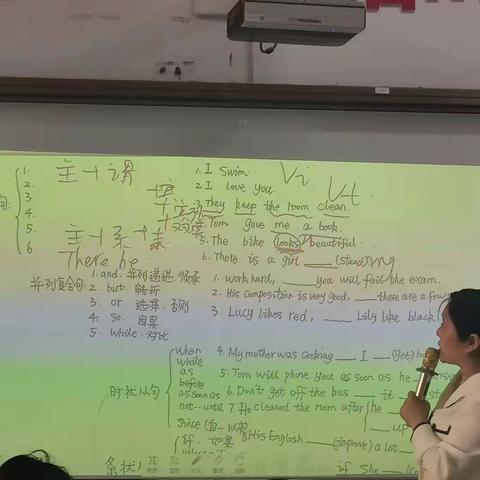 句:
1.
2.
3.
4.
5.
6.
主+谓
主+系+表
There be
Vi
Vt
1. I swim.
2. I love you.
3. They keep the room clean.
4. Tom gave me a book.
5. The bike looks beautiful.
6. There is a girl ____ (stand)ing
并列复合句:
1. and. 并列 递进. 顺承
2. but. 转折
3. or 选择. 否则
4. so. 因果
5. while. 对比.
1. work hard, ____ you will fail the exam.
2. His composition is very good, ____ there are a few
3. Lucy likes red, ____ Lily like black
时状从句
when
while
as
before
as soon as
not...until
since (自...以来)
4. My mother was cooking ____ I ____ (get) h
5. Tom will phone you as soon as he
6. Don't get off the bus ____ it
7. He cleaned the room after he
up
条状
if. 如果
8. His English ____ (improve) a lot
if she